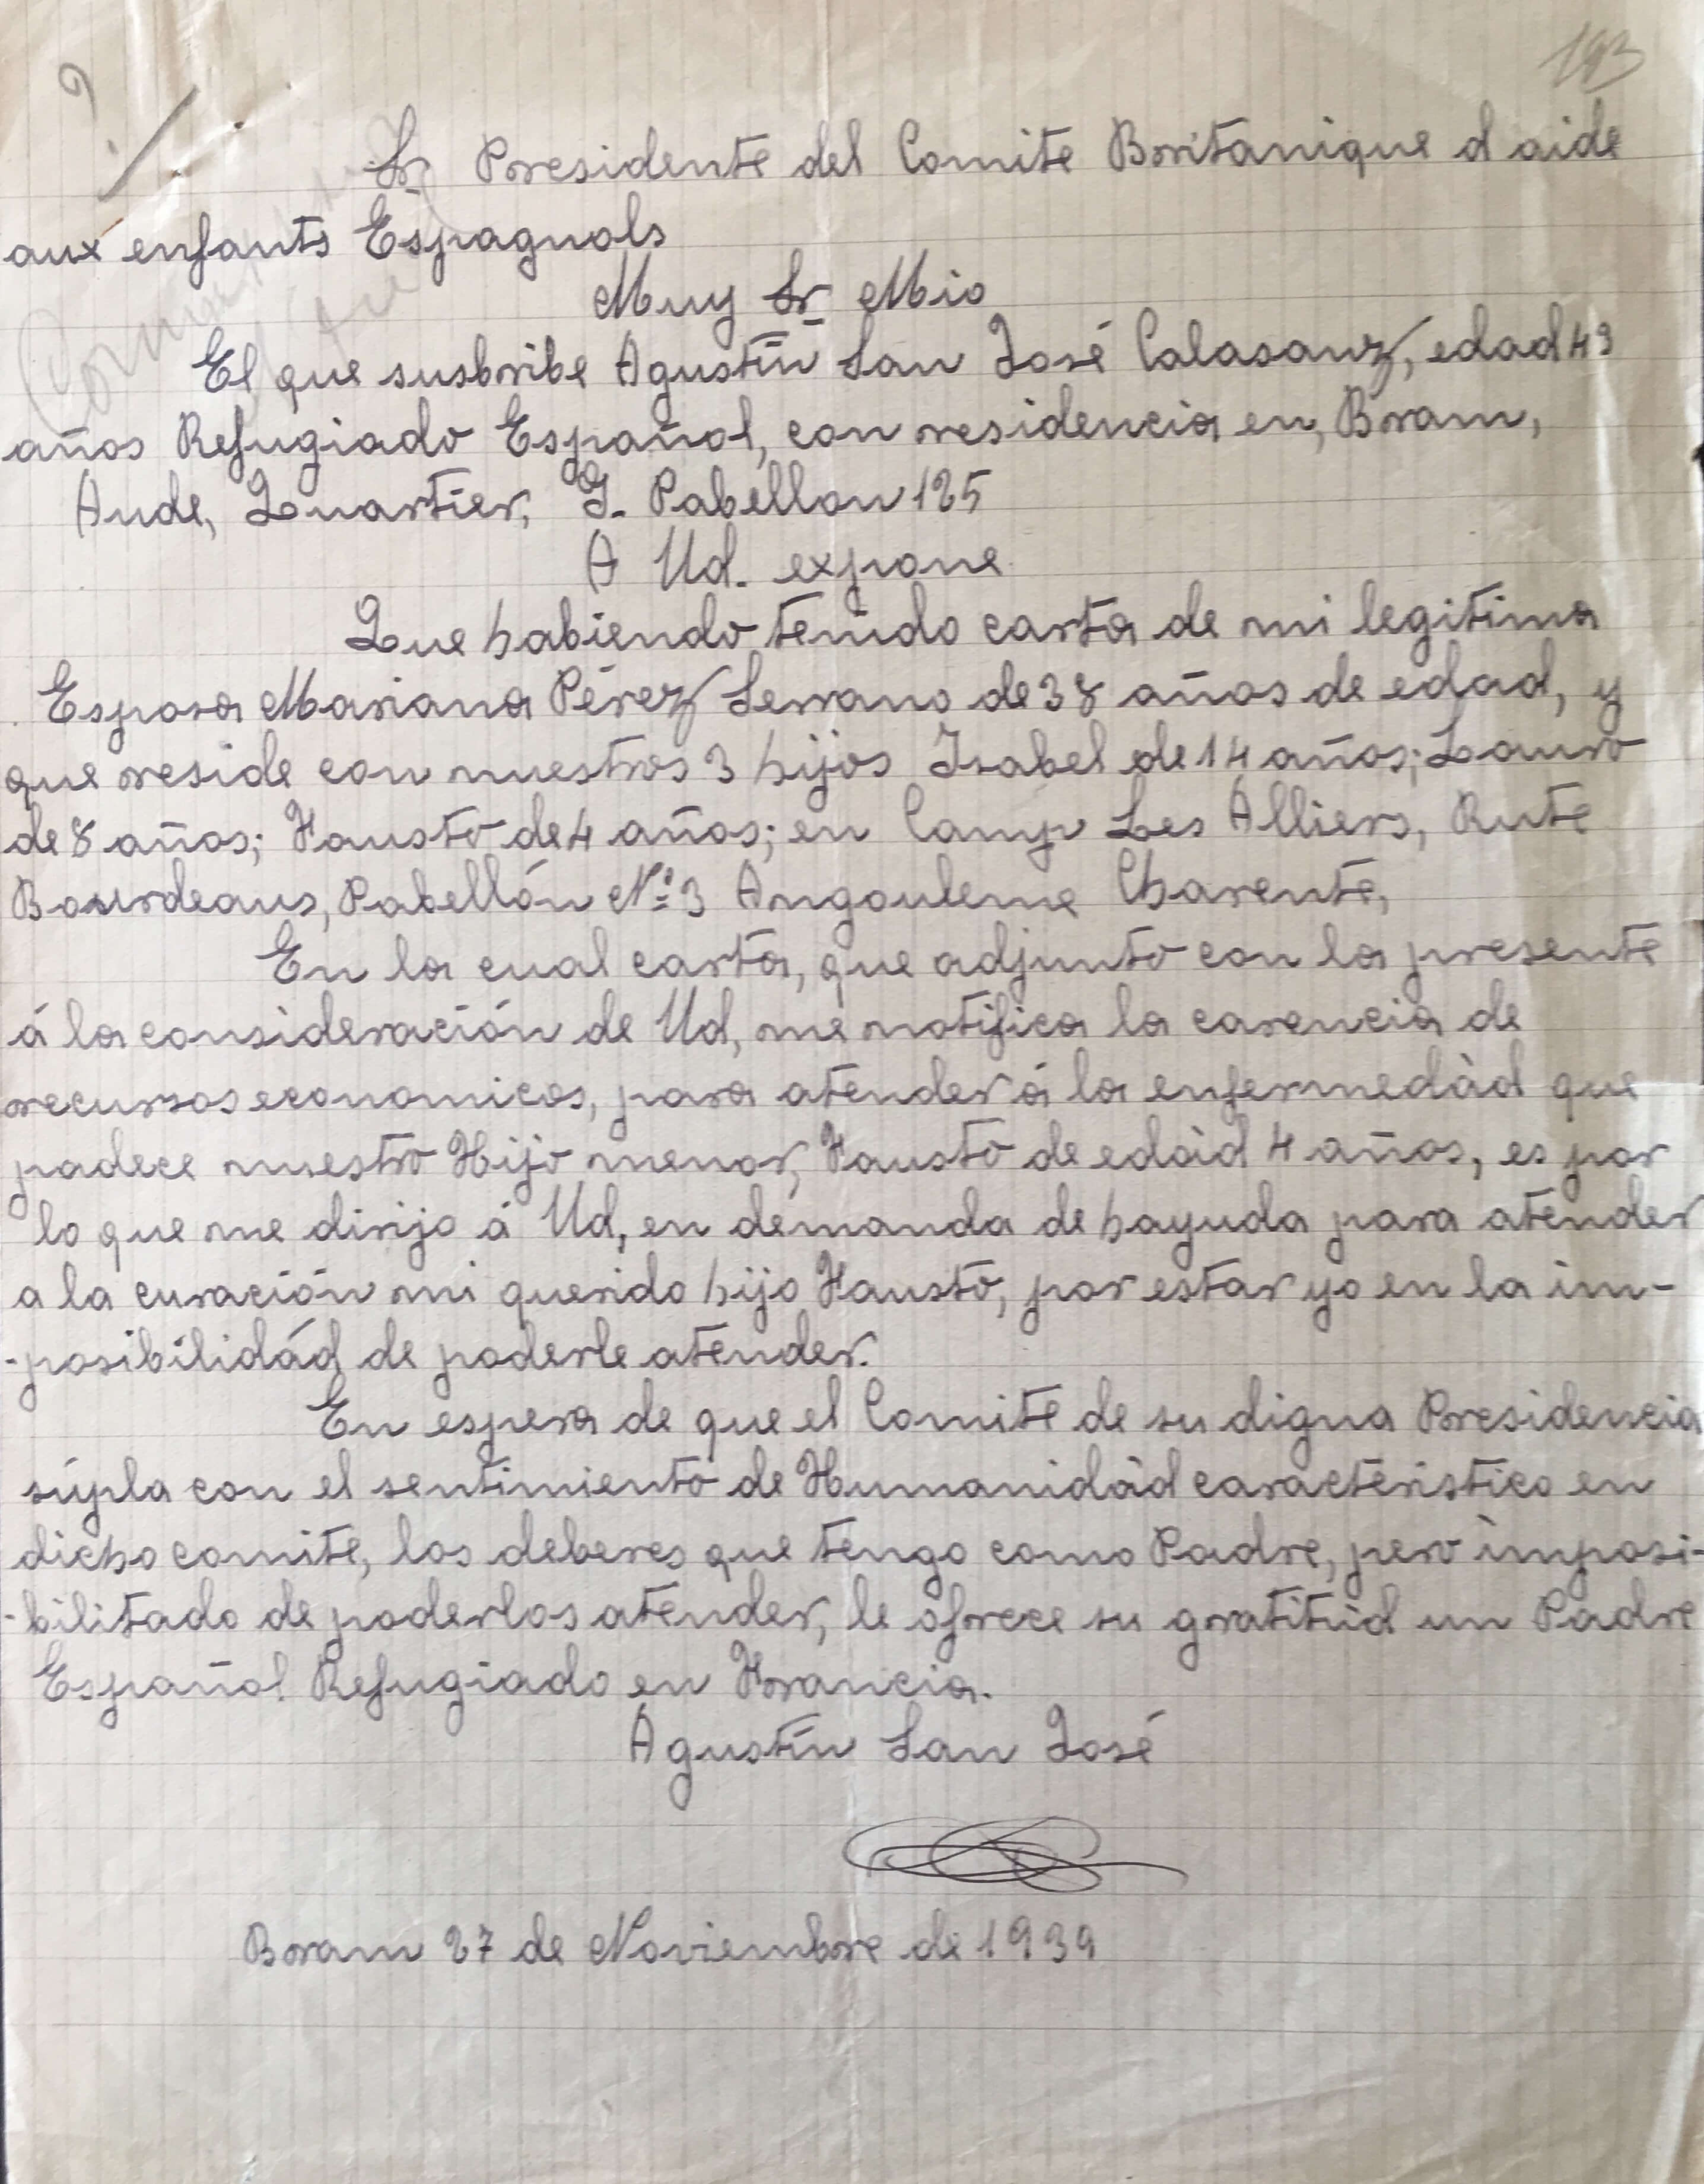 193
?
Sr Presidente del Comite Britanique d aide
aux enfants Espagnols
Muy Sr Mio
El que susbribe Agustín San José Calasanz, edad 49
años Refugiado Español, con residencia en, Bram,
Aude, Quartier, G. Pabellon 125
A Ud. expone
Que habiendo tenido carta de mi legitima
Esposa Mariana Pérez Serrano de 38 años de edad, y
que reside con nuestros 3 hijos Isabel de 14 años; Lauro
de 8 años; Fausto de 4 años; en Camp Les Alliers, Rute
Bourdeaus, Pabellón Nº 3 Angouleme Charente,
En la cual carta, que adjunto con la presente
á la consideración de Ud, me notifica la carencia de
recursos economicos, para atender á la enfermedàd que
padece nuestro Hijo menor, Fausto de edàd 4 años, es por
lo que me dirijo á Ud, en demanda de hayuda para atender
a la curación mi querido hijo Fausto, por estar yo en la im-
-posibilidád de poderle atender.
En espera de que el Comite de su digna Presidencia
súpla con el sentimiento de Humanidàd caracteristico en
dicho comite, los deberes que tengo como Padre, pero ìmposi-
-bilitado de poderlos atender, le ofrece su gratitùd un Padre
Español Refugiado en Francia.
Agustín San José
Bram 27 de Noviembre de 1939